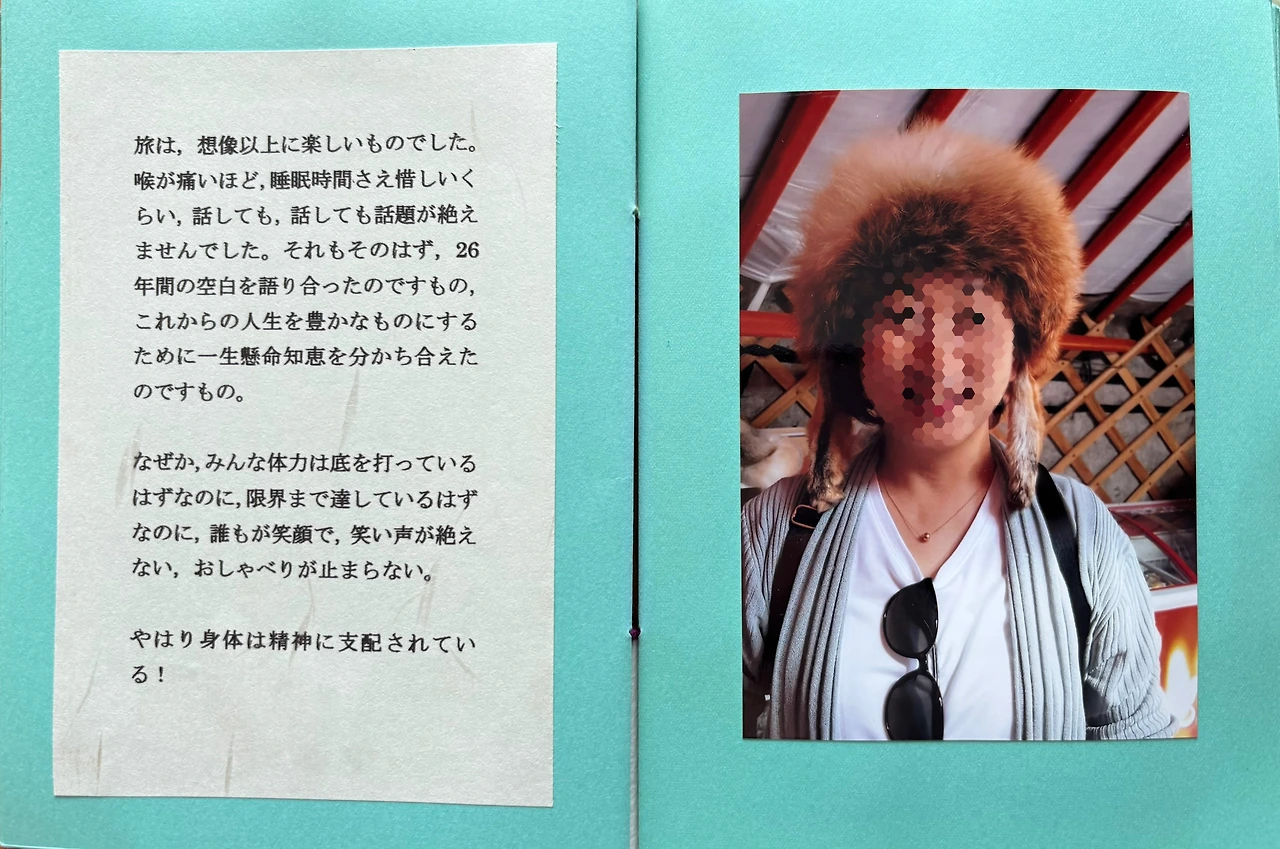 旅は，想像以上に楽しいものでした。
喉が痛いほど，睡眠時間さえ惜しいく
らい，話しても，話しても話題が絶え
ませんでした。それもそのはず，26
年間の空白を語り合ったのですもの，
これからの人生を豊かなものにする
ために一生懸命知恵を分かち合えた
のですもの。
なぜか，みんな体力は底を打っている
はずなのに，限界まで達しているはず
なのに，誰もが笑顔で，笑い声が絶え
ない，おしゃべりが止まらない。
やはり身体は精神に支配されてい
る！